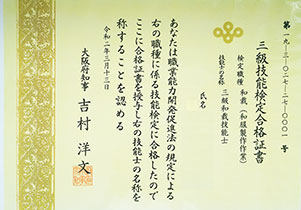 第一九-三-〇二七-二七-〇〇〇一号
三級技能検定合格証書
検定職種 和裁(和服製作作業)
技能士の名称 三級和裁技能士
氏名
あなたは職業能力開発促進法の規定による
右の職種に係る技能検定に合格したので
ここに合格証書を授与し右の技能士の名称を
称することを認める
令和二年三月十三日
大阪府知事 吉村洋文